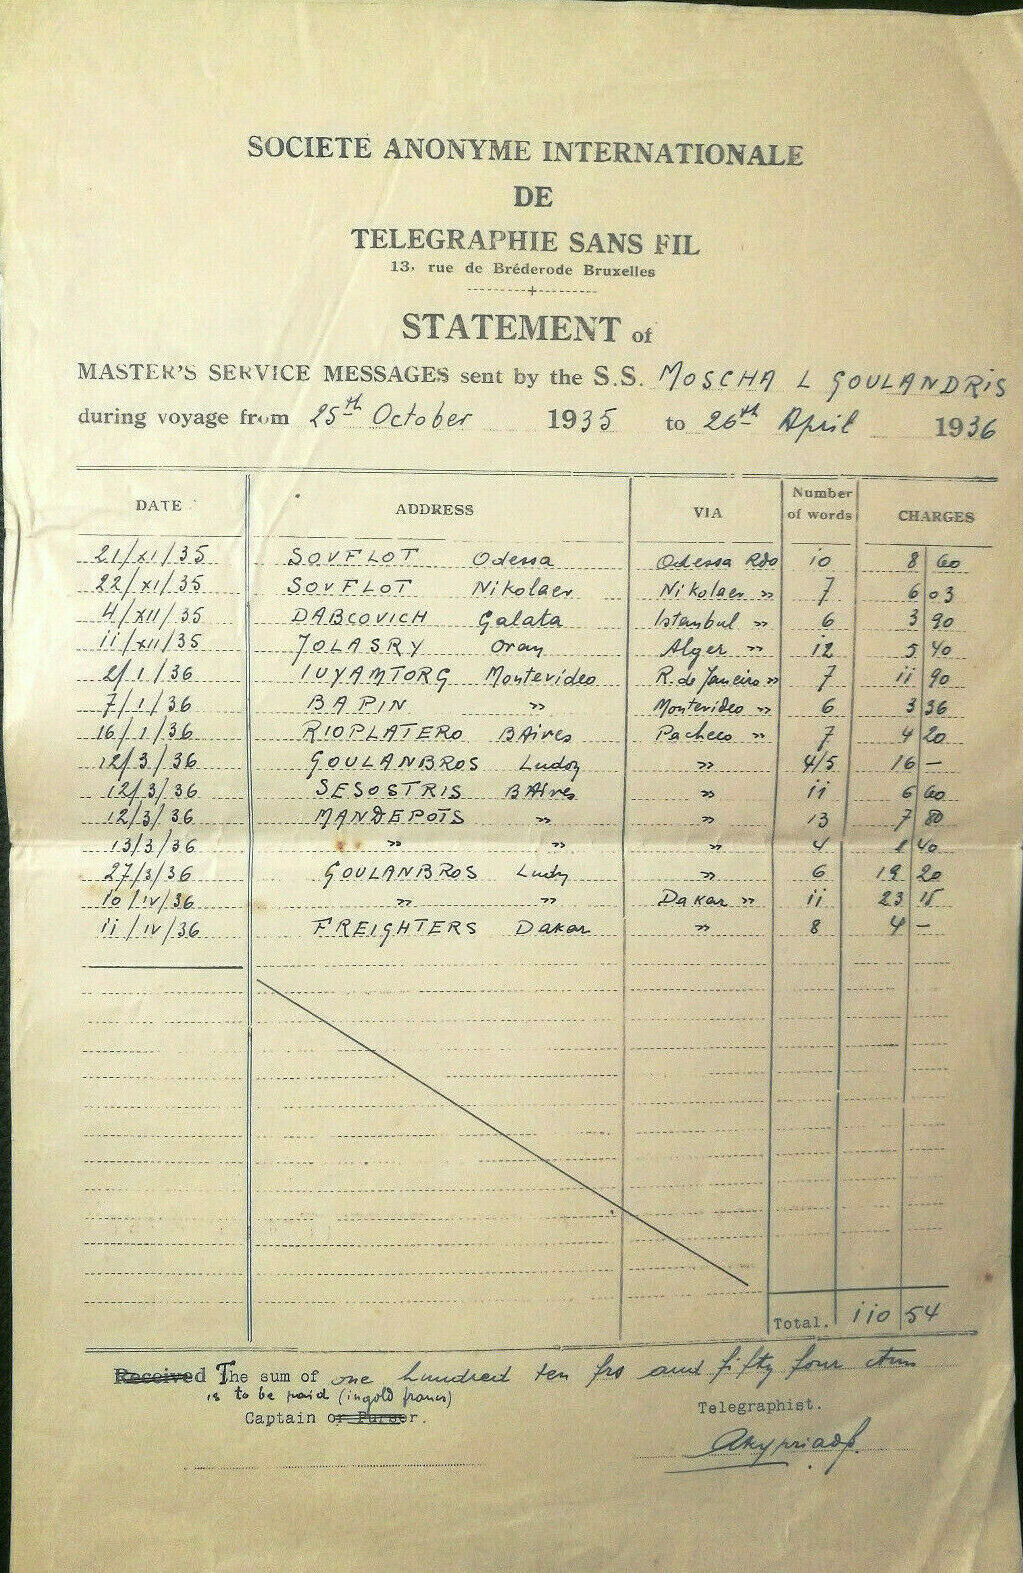 SOCIETÉ ANONYME INTERNATIONALE
DE
TELEGRAPHIE SANS FIL
13, rue de Bréderode Bruxelles
STATEMENT of
MASTER'S SERVICE MESSAGES sent by the S.S. MOSCHA L GOULANDRIS
during voyage from 25th October 1935 to 26th April 1936
DATE ADDRESS VIA Number of words CHARGES
21/XI/35 SOVFLOT Odessa Odessa Rdo 10 8 60
22/XI/35 SOVFLOT Nikolaev Nikolaev " 7 6 03
4/XII/35 DABCOVICH Galata Istanbul " 6 3 90
11/XII/35 JOLASRY Oran Alger " 12 5 40
2/1/36 IUYAMTORG Montevideo R. de Janeiro " 7 11 90
7/1/36 BAPIN " Montevideo " 6 3 36
16/1/36 RIOPLATERO BAires Pacheco " 7 4 20
12/3/36 GOULANBROS " 4/5 16 –
12/3/36 SESOSTRIS BAires " 11 6 60
12/3/36 MANDEPOTS " " 13 7 80
13/3/36 " " " 4 40
27/3/36 GOULANBROS " 6 19 20
10/IV/36 " " Dakar " 11 23 15
11/IV/36 FREIGHTERS Dakar " 8 4 –
Total. 110 54
Received The sum of one hundred ten frs and fifty four
is to be paid (in gold francs)
Captain or Purser.
Telegraphist.